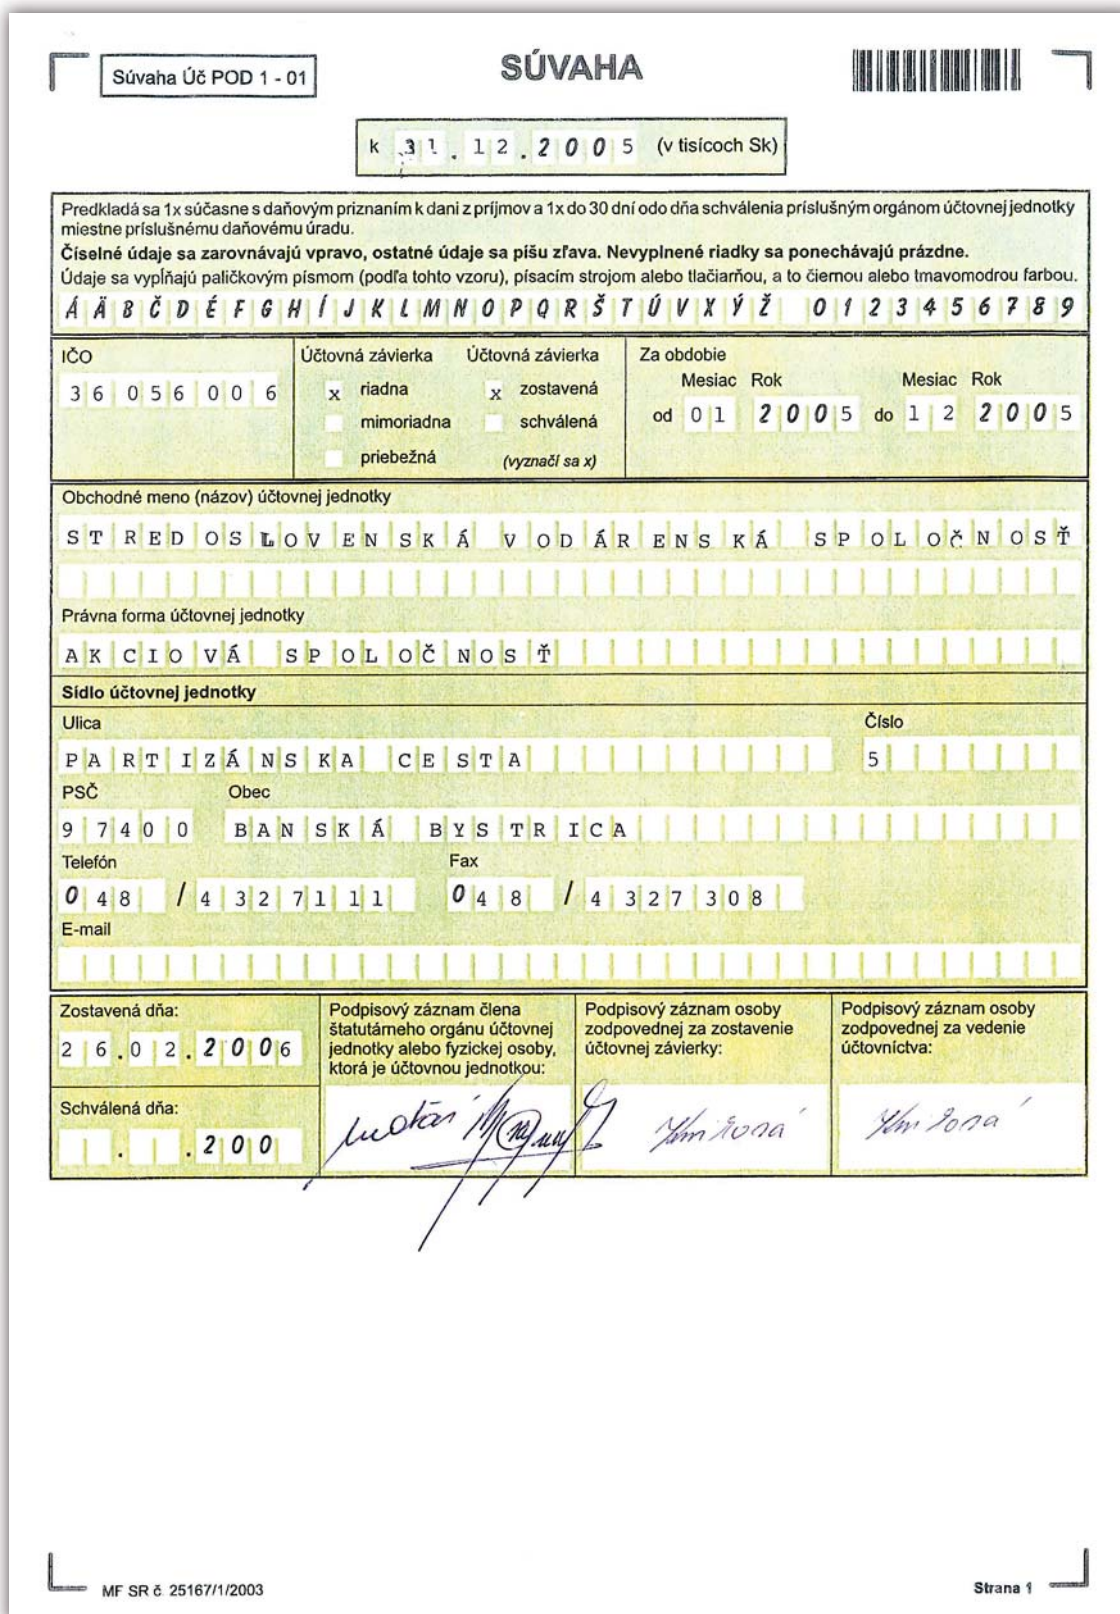 Súvaha Úč POD 1 - 01
SÚVAHA
k 31.12.2005 (v tisícoch Sk)
Predkladá sa 1x súčasne s daňovým priznaním k dani z príjmov a 1x do 30 dní odo dňa schválenia príslušným orgánom účtovnej jednotky
miestne príslušnému daňovému úradu.
Číselné údaje sa zarovnávajú vpravo, ostatné údaje sa píšu zľava. Nevyplnené riadky sa ponechávajú prázdne.
Údaje sa vypĺňajú paličkovým písmom (podľa tohto vzoru), písacím strojom alebo tlačiarňou, a to čiernou alebo tmavomodrou farbou.
Á Ä B Č D É F G H Í J K L M N O P Q R Š T Ú V X Ý Ž 0 1 2 3 4 5 6 7 8 9
IČO
36056006
Účtovná závierka Účtovná závierka
x riadna x zostavená
mimoriadna schválená
priebežná (vyznačí sa x)
Za obdobie
Mesiac Rok Mesiac Rok
od 01 2005 do 12 2005
Obchodné meno (názov) účtovnej jednotky
STREDOSLOVENSKÁ VODÁRENSKÁ SPOLOČNOSŤ
Právna forma účtovnej jednotky
AKCIOVÁ SPOLOČNOSŤ
Sídlo účtovnej jednotky
Ulica Číslo
PARTIZÁNSKA CESTA 5
PSČ Obec
97400 BANSKÁ BYSTRICA
Telefón Fax
048 / 4327111 048 / 4327308
E-mail
Zostavená dňa:
26.02.2006
Schválená dňa:
. . 200
Podpisový záznam člena
štatutárneho orgánu účtovnej
jednotky alebo fyzickej osoby,
ktorá je účtovnou jednotkou:
Podpisový záznam osoby
zodpovednej za zostavenie
účtovnej závierky:
Podpisový záznam osoby
zodpovednej za vedenie
účtovníctva:
MF SR č. 25167/1/2003
Strana 1